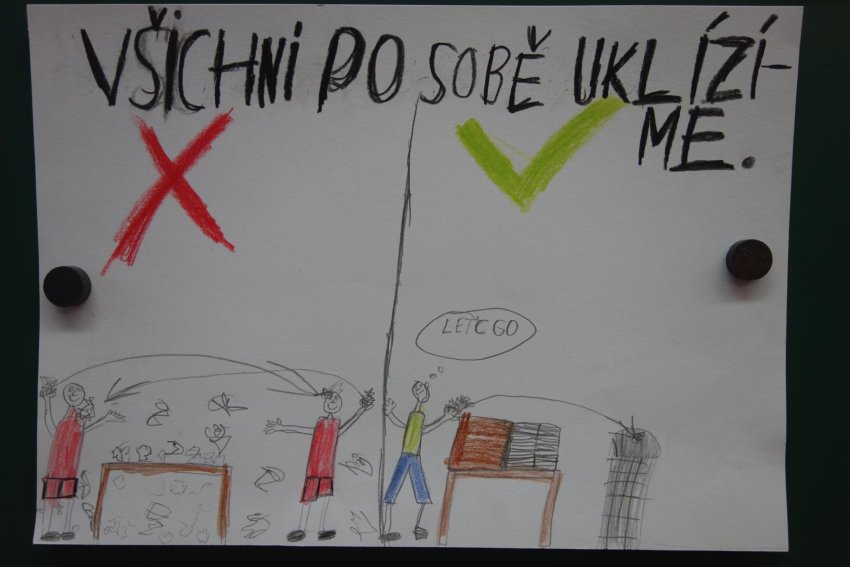 VŠICHNI PO SOBĚ UKLÍZÍ-
ME.
LET'C GO